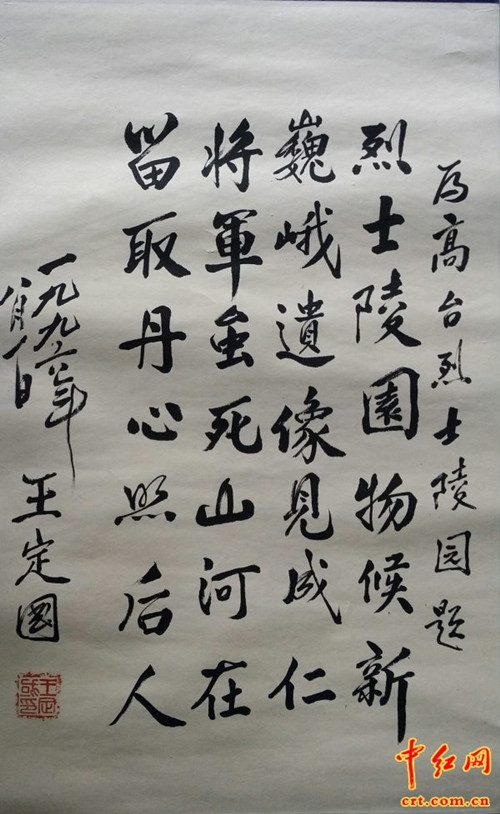 为高台烈士陵园题
烈士陵園物候新
巍峨遺像見成仁
将軍虽死山河在
留取丹心照后人
一九九六年
王定國
中红网
crt.com.cn